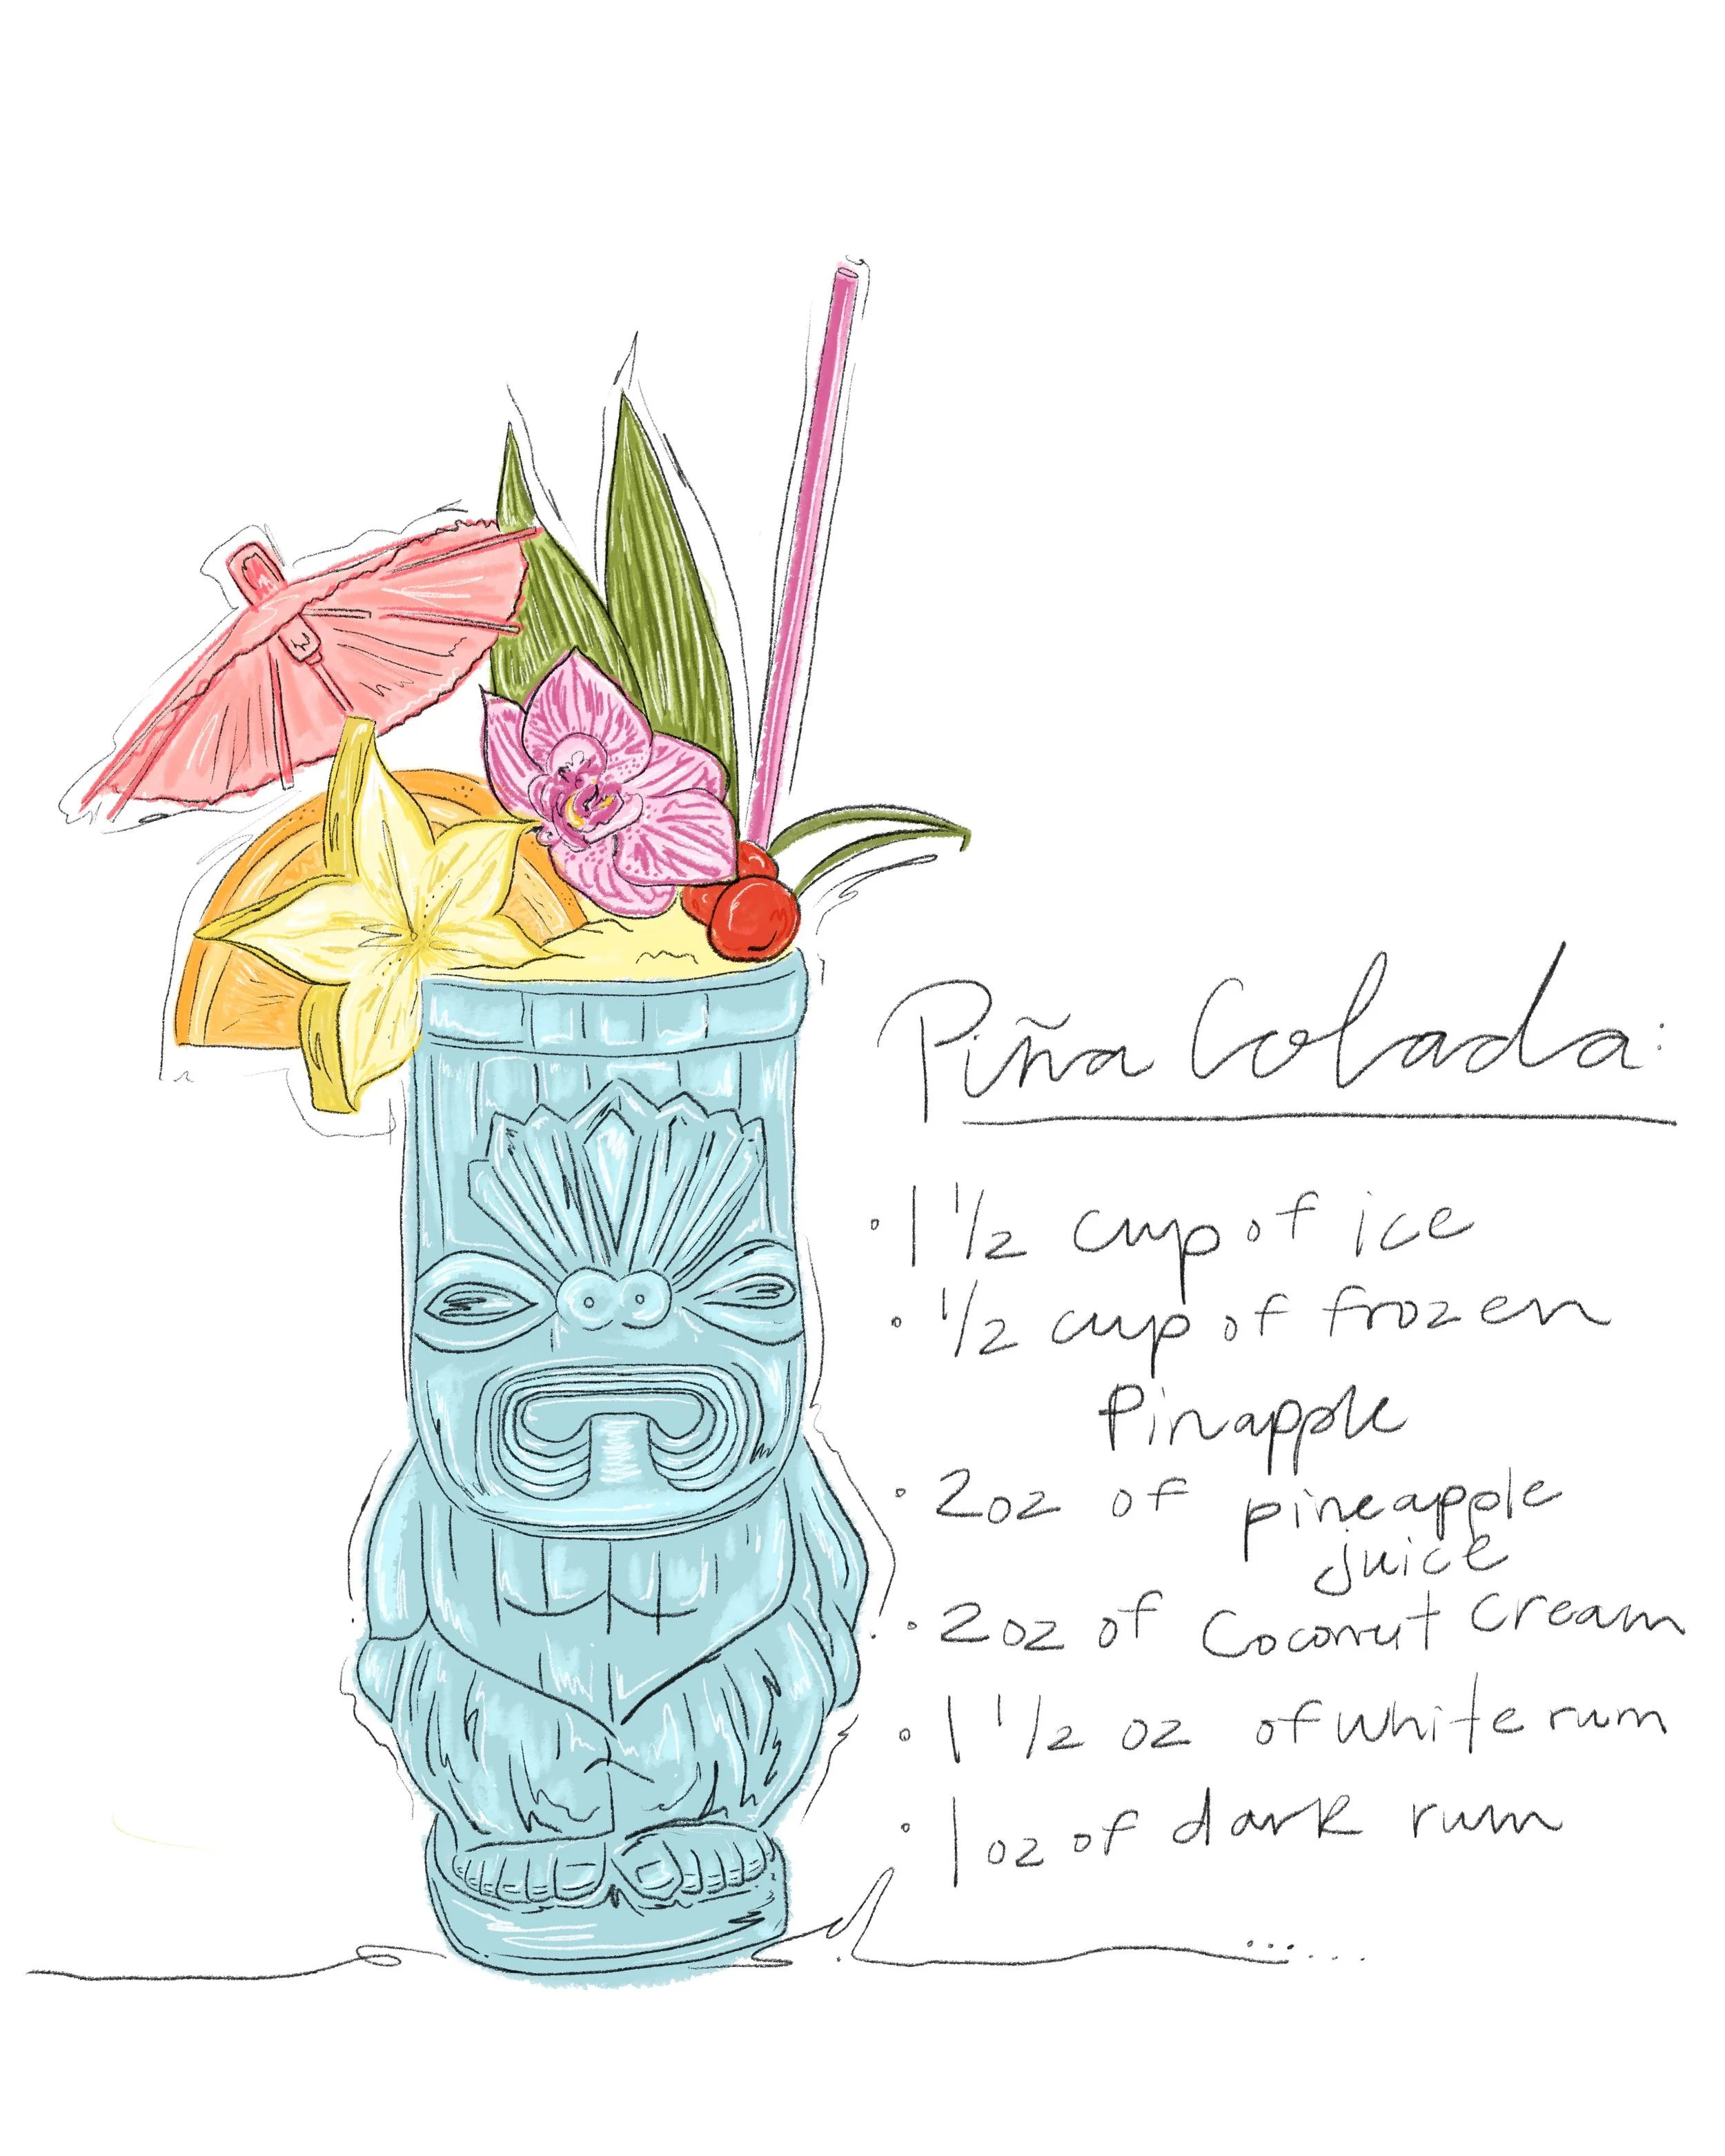 Piña Colada:
• 1 1/2 cup of ice
• 1/2 cup of frozen
Pinapple
• 2oz of pineapple
juice
• 2oz of Coconut cream
• 1 1/2 oz of white rum
• 1 oz of dark rum